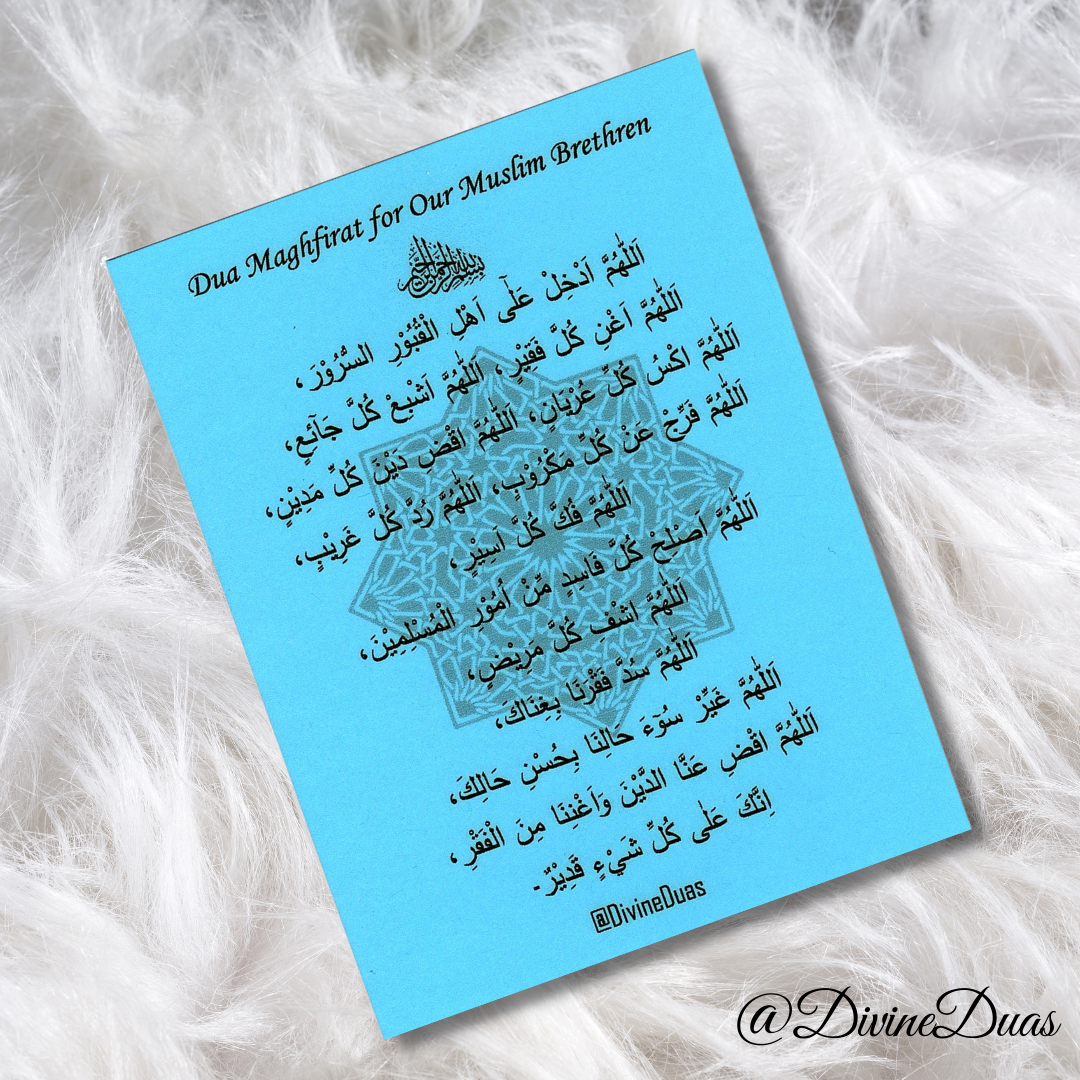 Dua Maghfirat for Our Muslim Brethren
بِسْمِ اللهِ الرَّحْمٰنِ الرَّحِيْمِ
اَللّٰهُمَّ اَدْخِلْ عَلٰٓى اَهْلِ الْقُبُوْرِ السُّرُوْرَ،
اَللّٰهُمَّ اَغْنِ كُلَّ فَقِيْرٍ، اَللّٰهُمَّ اَشْبِعْ كُلَّ جَآئِعٍ،
اَللّٰهُمَّ اكْسُ كُلَّ عُرْيَانٍ، اَللّٰهُمَّ اقْضِ دَيْنَ كُلِّ مَدِيْنٍ،
اَللّٰهُمَّ فَرِّجْ عَنْ كُلِّ مَكْرُوْبٍ، اَللّٰهُمَّ رُدَّ كُلَّ غَرِيْبٍ،
اَللّٰهُمَّ فُكَّ كُلَّ اَسِيْرٍ،
اَللّٰهُمَّ اَصْلِحْ كُلَّ فَاسِدٍ مِّنْ اُمُوْرِ الْمُسْلِمِيْنَ،
اَللّٰهُمَّ اشْفِ كُلَّ مَرِيْضٍ،
اَللّٰهُمَّ سُدَّ فَقْرَنَا بِغِنَاكَ،
اَللّٰهُمَّ غَيِّرْ سُوْٓءَ حَالِنَا بِحُسْنِ حَالِكَ،
اَللّٰهُمَّ اقْضِ عَنَّا الدَّيْنَ وَاَغْنِنَا مِنَ الْفَقْرِ،
اِنَّكَ عَلٰى كُلِّ شَيْءٍ قَدِيْرٌ۔
@DivineDuas
@DivineDuas